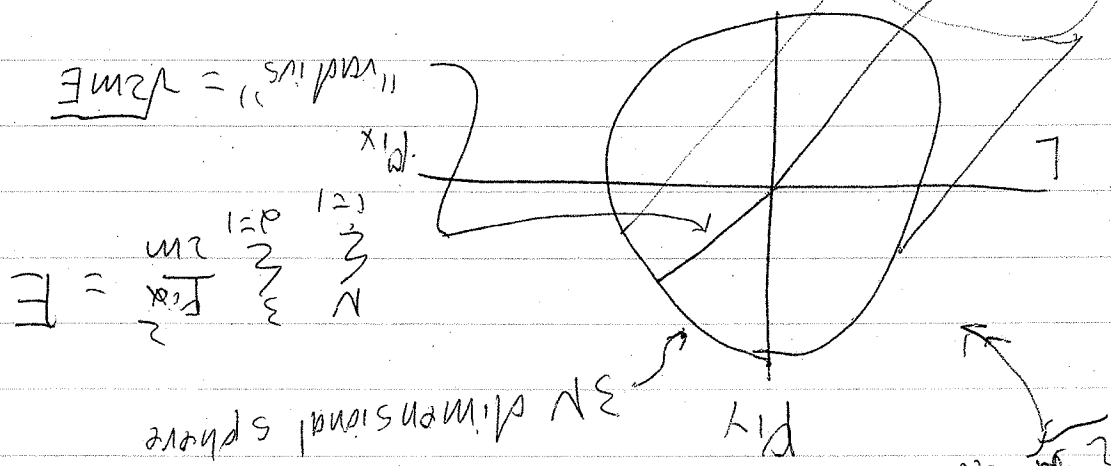 P1y
3N dimensional sphere
N 3
Σ Σ Piα² / 2m = E
i=1 α=1
P1x
"radius" = √2mE
L